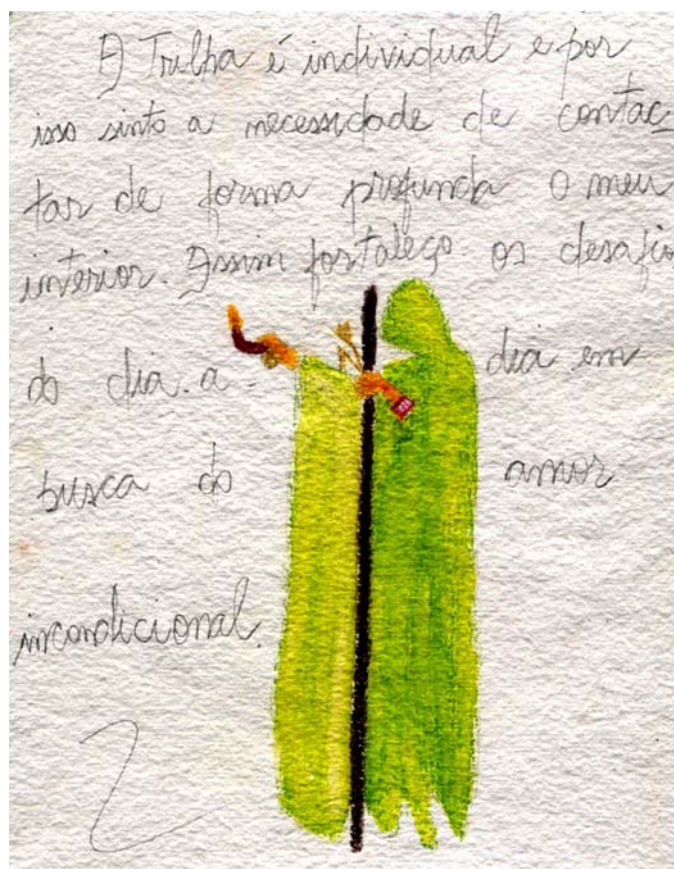 A Trilha é individual e por
isso sinto a necessidade de contac-
tar de forma profunda o meu
interior. Assim fortaleço os desafios
do dia-a-dia em
busca do amor
incondicional.